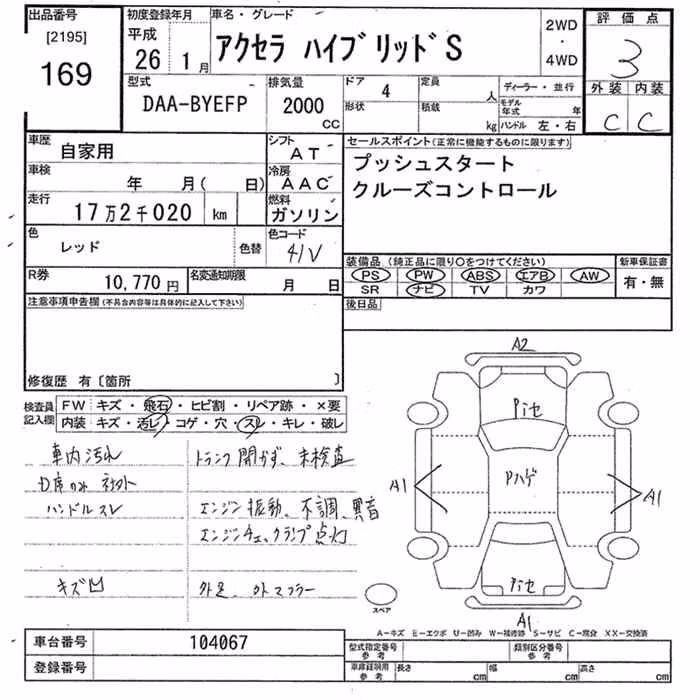 出品番号
[2195]
169
初度登録年月
平成
26 1月
車名・グレード
アクセラ ハイブリッドS
2WD
・
4WD
評価点
3
外装 内装
C C
型式
DAA-BYEFP
排気量
2000
CC
ドア 4
形状
定員 人
積載 kg
ディーラー・並行
モデル年式 年
ハンドル 左・右
車歴
自家用
シフト
AT
車検
年 月( 日)
冷房
AAC
走行
17万2千020 km
燃料
ガソリン
色
レッド
色替
色コード
41V
R券
10,770円
名変通知期限
月 日
セールスポイント(正常に機能するものに限ります)
プッシュスタート
クルーズコントロール
装備品(純正品に限り○をつけてください)
PS PW ABS エアB AW
SR ナビ TV カワ
新車保証書
有・無
後日品
注意事項申告欄(不具合内容等は具体的に記入して下さい)
修復歴 有〔箇所 〕
検査員
記入欄
FW キズ・飛石・ヒビ割・リペア跡・×要
内装 キズ・汚レ・コゲ・穴・スレ・キレ・破レ
車内汚れ
トランク開かず、未検査
D席のみ社外
ハンドルスレ
エンジン振動、不調、異音
エンジンチェックランプ点灯
キズ凹
外足、外マフラー
A2
Pイセ
A1
Pハゲ
A1
Pイセ
A1
スペア
A−キズ E−エクボ U−凹み W−補修跡 S−サビ C−腐食 XX−交換済
車台番号
104067
登録番号
型式指定番号
参考
類別区分番号
参考
車庫証明用
参考
長さ cm
幅 cm
高さ cm